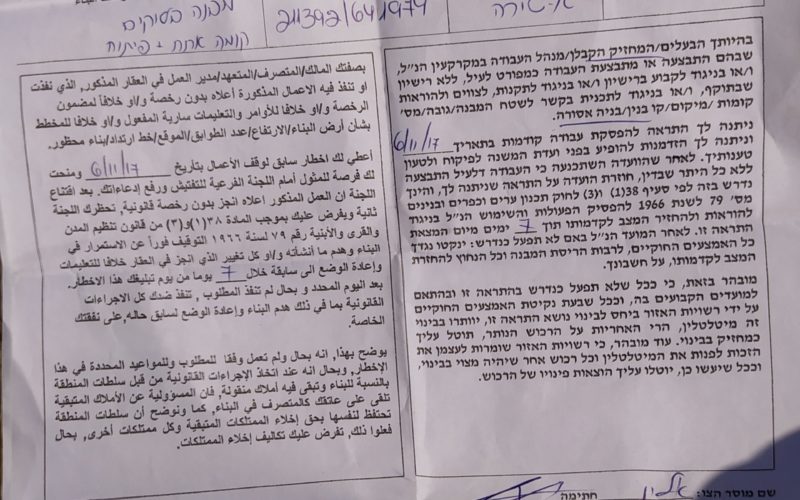 מבנה בסיקים
קומת ארת + פיתוח
21392/641979
א-טירה
בהיותך הבעלים/המחזיק הקבלן/מנהל העבודה במקרקעין הנ"ל,
שבהם התבצעה או מתבצעת העבודה כמפורט לעיל, ללא רישיון
ו/או בניגוד לקבוע ברישיון ו/או בניגוד לתקנות, לצווים ולהוראות
שבתוקף, ו/או בניגוד לתכנית בקשר לשטח המבנה/גובה/מס'
קומות /מיקום/קו בנין/בניה אסורה.
ניתנה לך התראה להפסקת עבודה קודמות בתאריך 6/11/17
וניתנה לך הזדמנות להופיע בפני ועדת המשנה לפיקוח ולטעון
טענותיך. לאחר שהוועדה השתכנעה כי העבודה דלעיל התבצעה
ללא כל היתר שבדין, חוזרת הועדה על התראה שניתנה לך, והינך
נדרש בזה לפי סעיף 38(1) ו(3) לחוק תכנון ערים וכפרים ובנינים
מס' 79 לשנת 1966 להפסיק הפעולות והשימוש הנ"ל בניגוד
להוראות ולהחזיר המצב לקדמותו תוך 7 ימים מיום המצאת
התראה זו. לאחר המועד הנ"ל באם לא תפעל כנדרש: ינקטו נגדך
כל האמצעים החוקיים, לרבות הריסת המבנה וכל הנחוץ להחזרת
המצב לקדמותו, על חשבונך.
מובהר בזאת, כי ככל שלא תפעל כנדרש בהתראה זו ובהתאם
למועדים הקבועים בה, וככל שבעת נקיטת האמצעים החוקיים
על ידי רשויות האזור ביחס לבינוי נושא התראה זו, יוותרו בבינוי
זה מיטלטלין, הרי האחריות על הרכוש הנותר, תוטל עליך
כמחזיק בבינוי. עוד מובהר, כי רשויות האזור שומרות לעצמן את
הזכות לפנות את המיטלטלין וכל רכוש אחר שיהיה מצוי בבינוי,
וככל שיעשו כן, יוטלו עליך הוצאות פינויו של הרכוש.
بصفتك المالك/المتصرف/المتعهد/مدير العمل في العقار المذكور, الذي نفذت
او تنفذ فيه الاعمال المذكورة أعلاه بدون رخصة و/او خلافاً لمضمون
الرخصة و/او خلافا للأوامر والتعليمات سارية المفعول و/او خلافا للمخطط
بشأن أرض البناء/الارتفاع/عدد الطوابق/الموقع/خط ارتداد/بناء محظور.
أعطي لك اخطار سابق لوقف الأعمال بتأريخ 6/11/17 ومنحت
لك فرصة للمثول أمام اللجنة الفرعية للتفتيش ورفع إدعاءاتك. بعد اقتناع
اللجنة ان العمل المذكور اعلاه انجز بدون رخصة قانونية, تحظرك اللجنة
ثانية ويفرض عليك بموجب المادة ٣٨(١)و(٣) من قانون تنظيم المدن
والقرى والأبنية رقم ٧٩ لسنة ١٩٦٦ التوقيف فوراً عن الاستمرار في
البناء وهدم ما أنشأته و/او كل تغيير الذي انجز في العقار خلافا للتعليمات
وإعادة الوضع الى سابقة خلال 7 يوما من يوم تبليغك هذا الاخطار.
بعد اليوم المحدد و بحال لم تنفذ المطلوب , تنفذ ضدك كل الاجراءات
القانونية بما في ذلك هدم البناء وإعادة الوضع لسابق حاله, على نفقتك
الخاصة.
يوضح بهذا, انه بحال ولم تعمل وفقا للمطلوب وللمواعيد المحددة في هذا
الإخطار, وبحال انه عند اتخاذ الإجراءات القانونية من قبل سلطات المنطقة
بالنسبة للبناء وتبقى فيه أملاك منقولة, فان المسؤولية عن الأملاك المتبقية
تلقى على عاتقك كالمتصرف في البناء, كما ونوضح أن سلطات المنطقة
تحتفظ لنفسها بحق إخلاء الممتلكات المتبقية وكل ممتلكات أخرى, بحال
فعلوا ذلك, تفرض عليك تكاليف إخلاء الممتلكات.
שם מוסר הצו: אלין חתימה